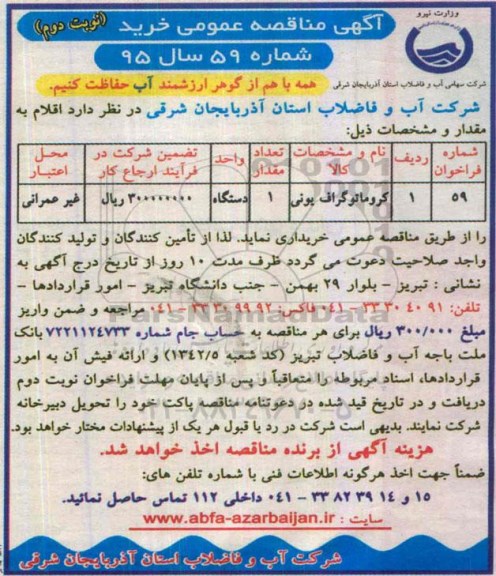 وزارت نیرو
آگهی مناقصه عمومی خرید (نوبت دوم)
شماره ۵۹ سال ۹۵
شرکت سهامی آب و فاضلاب استان آذربایجان شرقی
همه با هم از گوهر ارزشمند آب حفاظت کنیم.
شرکت آب و فاضلاب استان آذربایجان شرقی در نظر دارد اقلام به
مقدار و مشخصات ذیل:
شماره فراخوان ردیف نام و مشخصات کالا تعداد مقدار واحد تضمین شرکت در فرآیند ارجاع کار محل اعتبار
۵۹ ۱ کروماتوگراف یونی ۱ دستگاه ۳۰۰۰۰۰۰۰۰ ریال غیر عمرانی
را از طریق مناقصه عمومی خریداری نماید. لذا از تأمین کنندگان و تولید کنندگان
واجد صلاحیت دعوت می گردد ظرف مدت ۱۰ روز از تاریخ درج آگهی به
نشانی : تبریز - بلوار ۲۹ بهمن - جنب دانشگاه تبریز - امور قراردادها -
تلفن: ۹۱ ۴۰ ۳۰ ۳۳ - ۰۴۱ فاکس: ۹۲ ۹۹ ۳۰ ۳۳ - ۰۴۱ مراجعه و ضمن واریز
مبلغ ۳۰۰/۰۰۰ ریال برای هر مناقصه به حساب جام شماره ۷۲۲۱۱۲۴۷۳۳ بانک
ملت باجه آب و فاضلاب تبریز (کد شعبه ۱۳۴۲/۵) و ارائه فیش آن به امور
قراردادها، اسناد مربوطه را متعاقباً و پس از پایان مهلت فراخوان نوبت دوم
دریافت و در تاریخ قید شده در دعوتنامه مناقصه پاکت خود را تحویل دبیرخانه
شرکت نمایند. بدیهی است شرکت در رد یا قبول هر یک از پیشنهادات مختار خواهد بود.
هزینه آگهی از برنده مناقصه اخذ خواهد شد.
ضمناً جهت اخذ هرگونه اطلاعات فنی با شماره تلفن های:
۱۵ و ۱۴ ۳۹ ۸۲ ۳۳ - ۰۴۱ داخلی ۱۱۲ تماس حاصل نمائید.
سایت : www.abfa-azarbaijan.ir
شرکت آب و فاضلاب استان آذربایجان شرقی